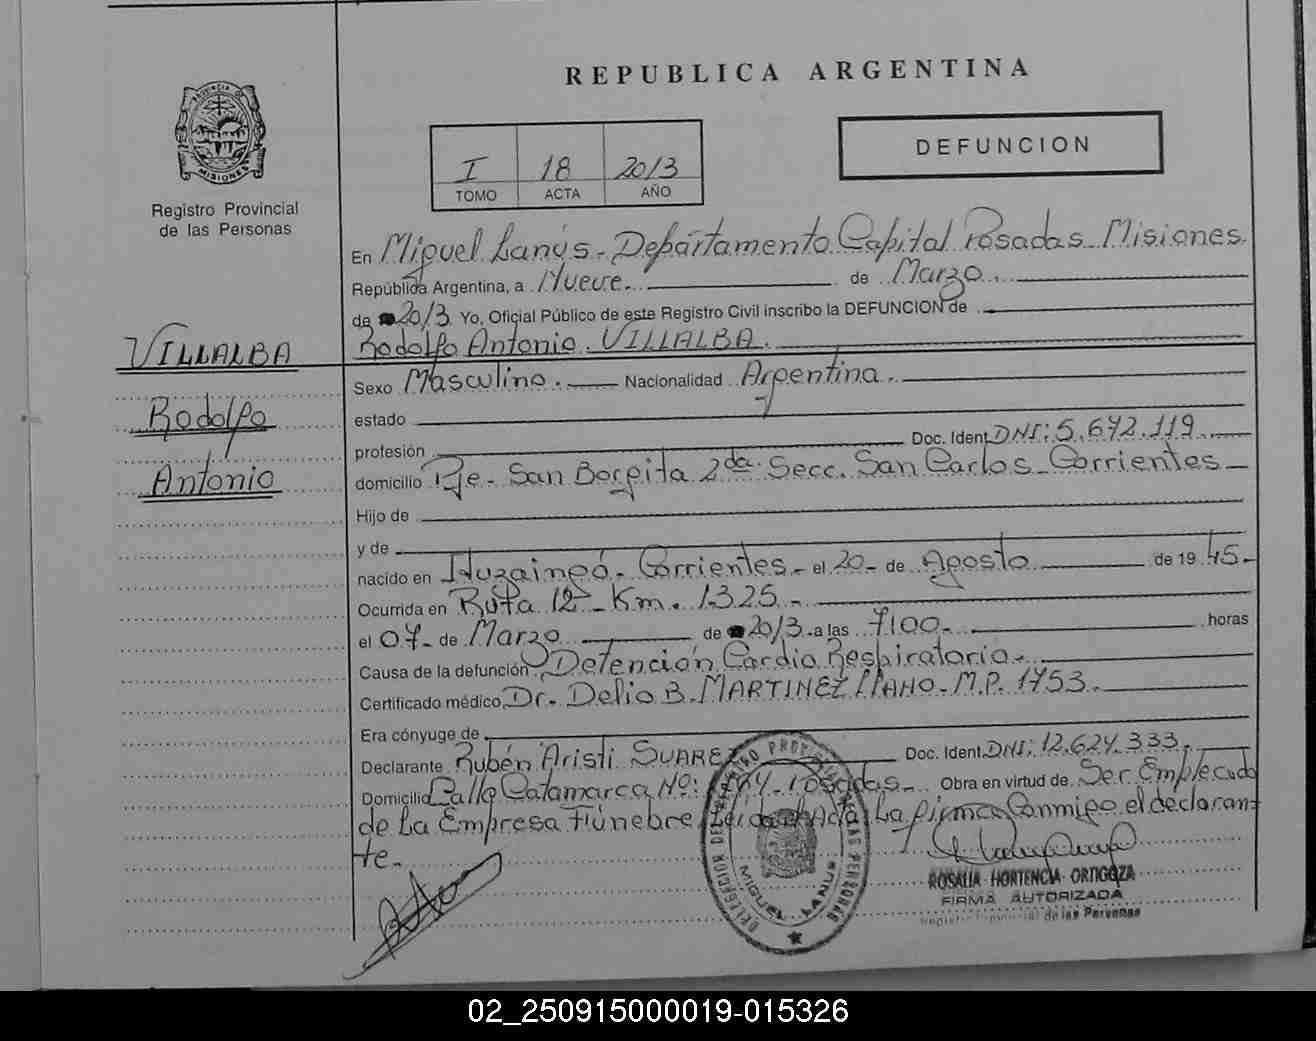 REPUBLICA ARGENTINA
PROVINCIA DE
MISIONES
Registro Provincial
de las Personas
I 18 2013
TOMO ACTA AÑO
DEFUNCION
En Miguel Lanús - Departamento Capital Posadas - Misiones.
República Argentina, a Nueve. de Marzo
de 2013 Yo, Oficial Público de este Registro Civil inscribo la DEFUNCION de
Rodolfo Antonio. VILLALBA.
VILLALBA
Rodolfo
Antonio
Sexo Masculino. Nacionalidad Argentina.
estado
profesión Doc. Ident. DNI: 5.642.119
domicilio Pje. San Borgita 2da. Secc. San Carlos - Corrientes
Hijo de
y de
nacido en Ituzaingó - Corrientes - el 20 - de Agosto de 1945.
Ocurrida en Ruta 12 - Km. 1325 -
el 07 - de Marzo de 2013 - a las 7:00 - horas
Causa de la defunción Detención Cardio Respiratoria -
Certificado médico Dr. Delio B. MARTINEZ LLANO - M.P. 1753.
Era cónyuge de
Declarante Rubén Aristi SUAREZ Doc. Ident. DNI: 12.624.333
Domicilio Calle Catamarca Nº: Posadas - Obra en virtud de Ser Empleado
de La Empresa Fúnebre, Leída el Acta, La firma Conmigo el declaran-
te.
DELEGACION DEL REGISTRO PROVINCIAL DE LAS PERSONAS
MIGUEL LANUS
ROSALIA HORTENCIA ORTIGOZA
FIRMA AUTORIZADA
Registro Provincial de las Personas
02_250915000019-015326